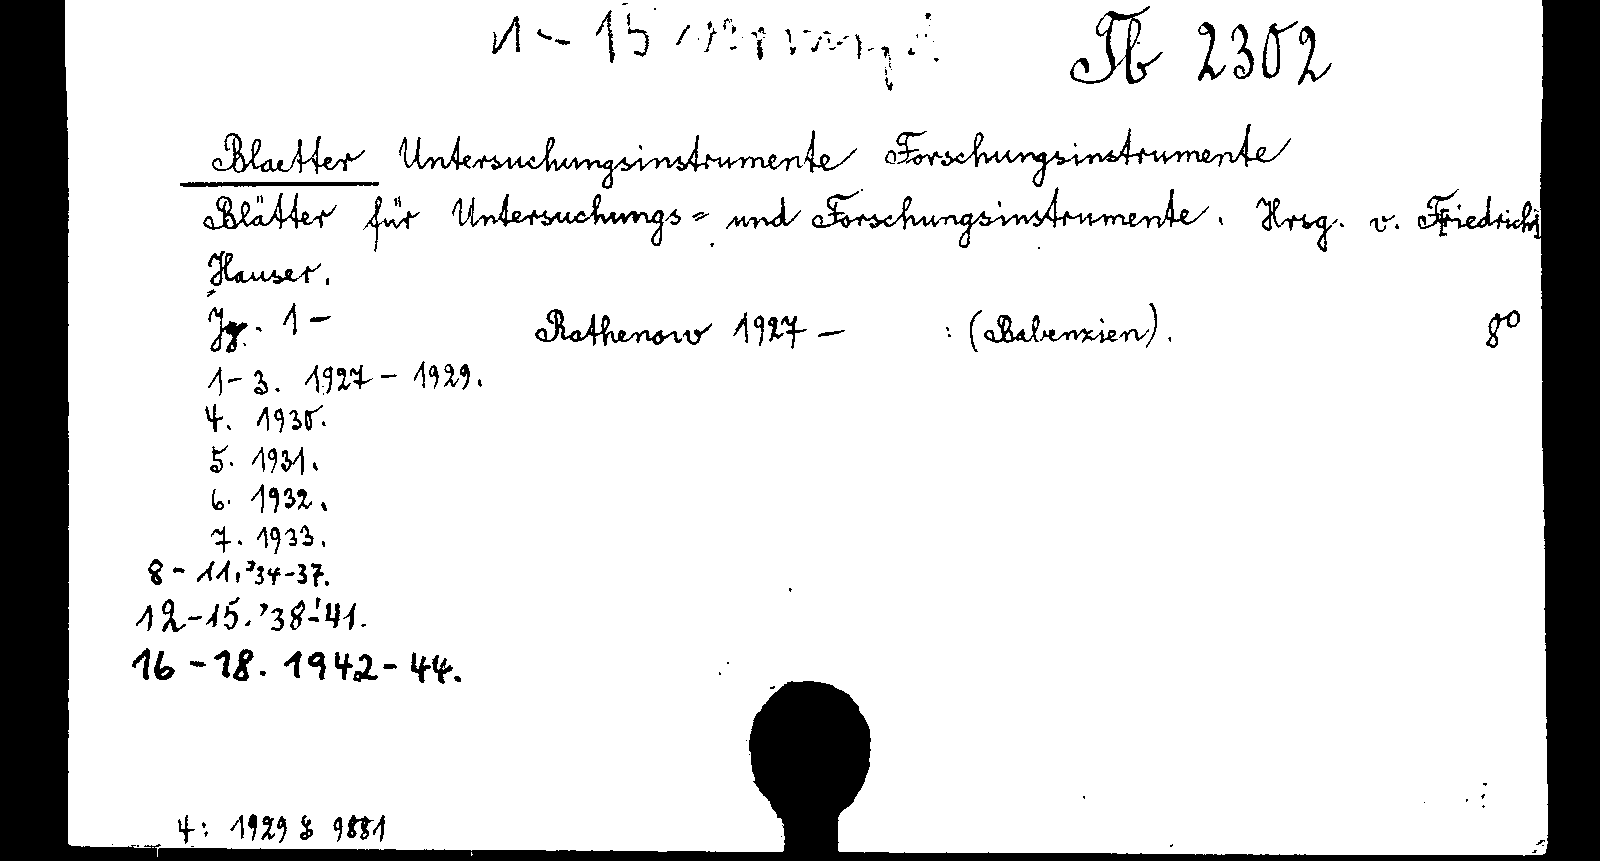 1 – 15
Tb 2302
Blaetter Untersuchungsinstrumente Forschungsinstrumente
Blätter für Untersuchungs= und Forschungsinstrumente. Hrsg. v. Friedrich
Hauser.
Jg. 1 – Rathenow 1927 – : (Babenzien). 8°
1 – 3. 1927 – 1929.
4. 1930.
5. 1931.
6. 1932.
7. 1933.
8 – 11, '34-37.
12 – 15. '38-'41.
16 – 18. 1942 – 44.
4: 1929 9881